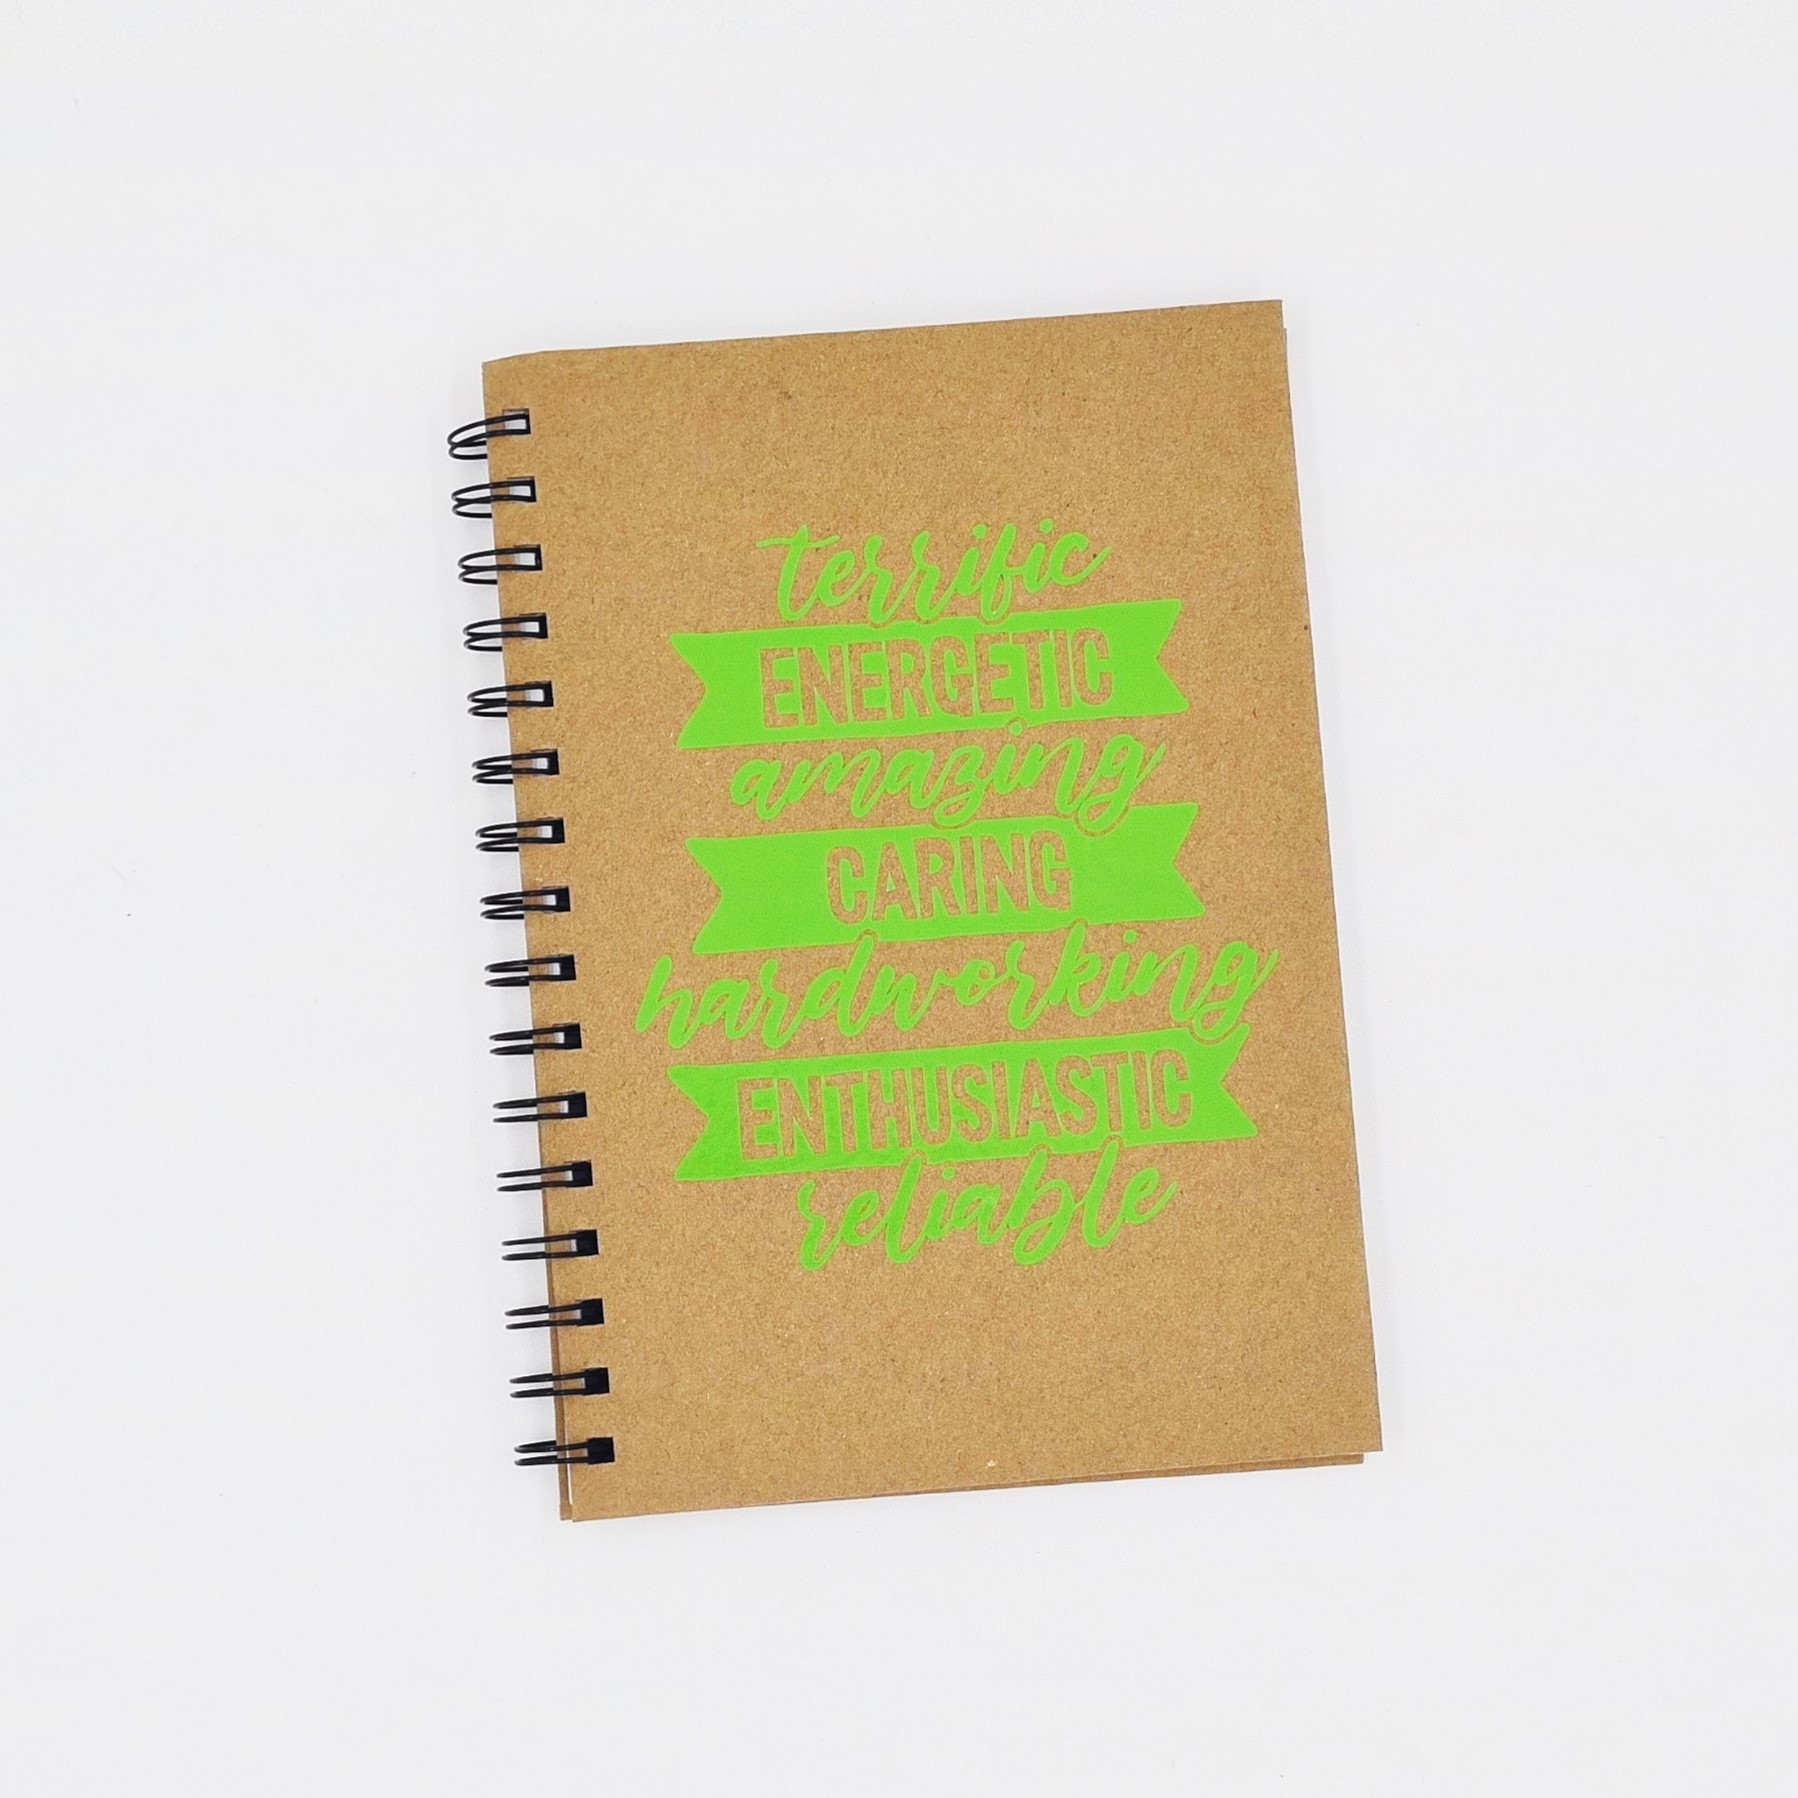 terrific
ENERGETIC
amazing
CARING
hardworking
ENTHUSIASTIC
reliable